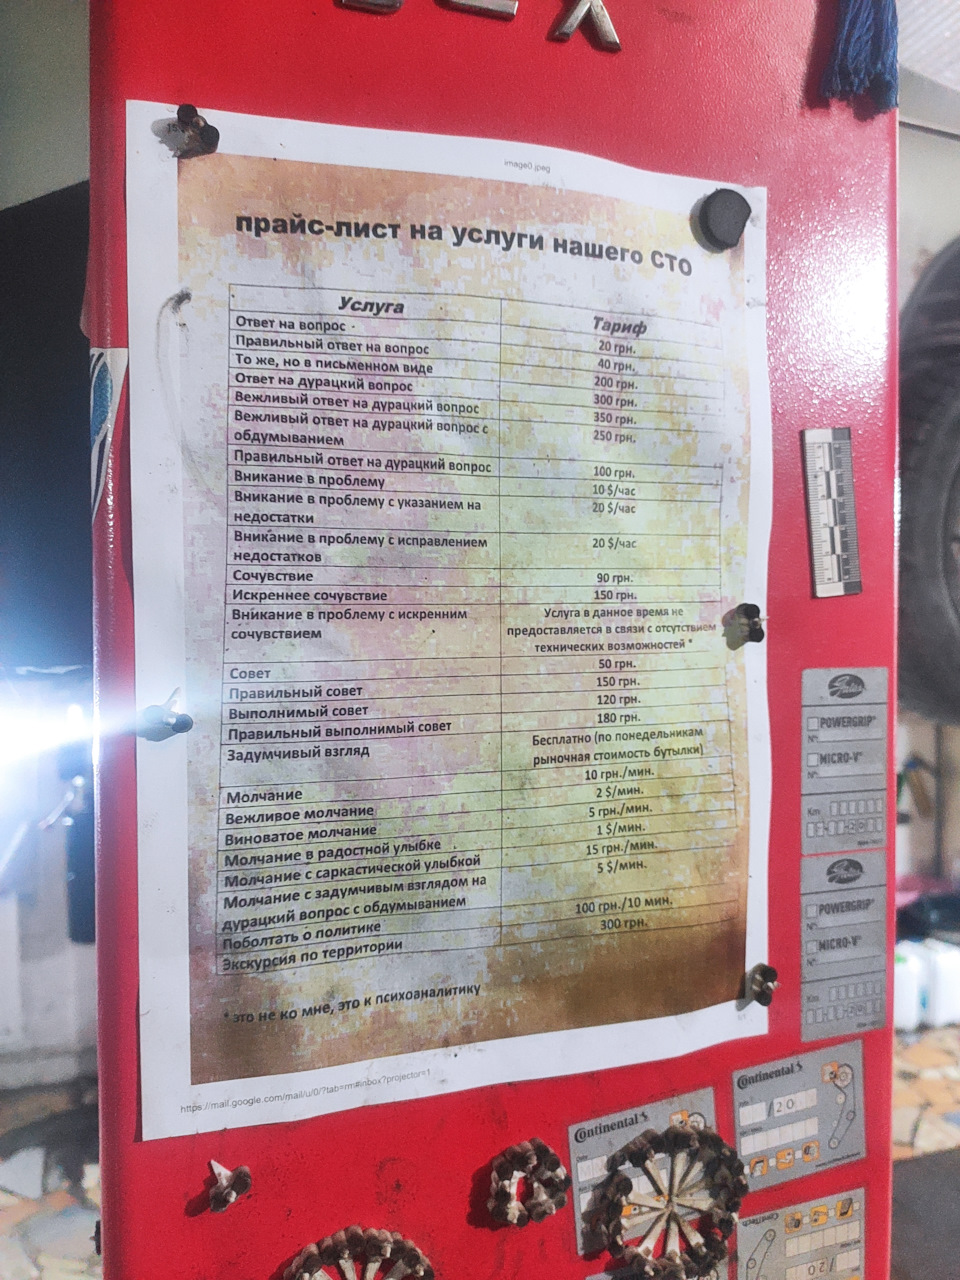 image0.jpeg
прайс-лист на услуги нашего СТО
Услуга Тариф
Ответ на вопрос 20 грн.
Правильный ответ на вопрос 40 грн.
То же, но в письменном виде 200 грн.
Ответ на дурацкий вопрос 300 грн.
Вежливый ответ на дурацкий вопрос 350 грн.
Вежливый ответ на дурацкий вопрос с 250 грн.
обдумыванием
Правильный ответ на дурацкий вопрос 100 грн.
Вникание в проблему 10 $/час
Вникание в проблему с указанием на 20 $/час
недостатки
Вникание в проблему с исправлением 20 $/час
недостатков
Сочувствие 90 грн.
Искреннее сочувствие 150 грн.
Вникание в проблему с искренним Услуга в данное время не
сочувствием предоставляется в связи с отсутствием
технических возможностей *
Совет 50 грн.
Правильный совет 150 грн.
Выполнимый совет 120 грн.
Правильный выполнимый совет 180 грн.
Задумчивый взгляд Бесплатно (по понедельникам
рыночная стоимость бутылки)
Молчание 10 грн./мин.
Вежливое молчание 2 $/мин.
Виноватое молчание 5 грн./мин.
Молчание в радостной улыбке 1 $/мин.
Молчание с саркастической улыбкой 15 грн./мин.
Молчание с задумчивым взглядом на 5 $/мин.
дурацкий вопрос с обдумыванием
Поболтать о политике 100 грн./10 мин.
Экскурсия по территории 300 грн.
* это не ко мне, это к психоаналитику
https://mail.google.com/mail/u/0/?tab=rm#inbox?projector=1
1/1
Gates
POWERGRIP®
N°:
MICRO-V®
N°:
Km
20
Gates
POWERGRIP®
N°:
MICRO-V®
N°:
Km
20
Continental
/20
Continental
ContiTech
/20